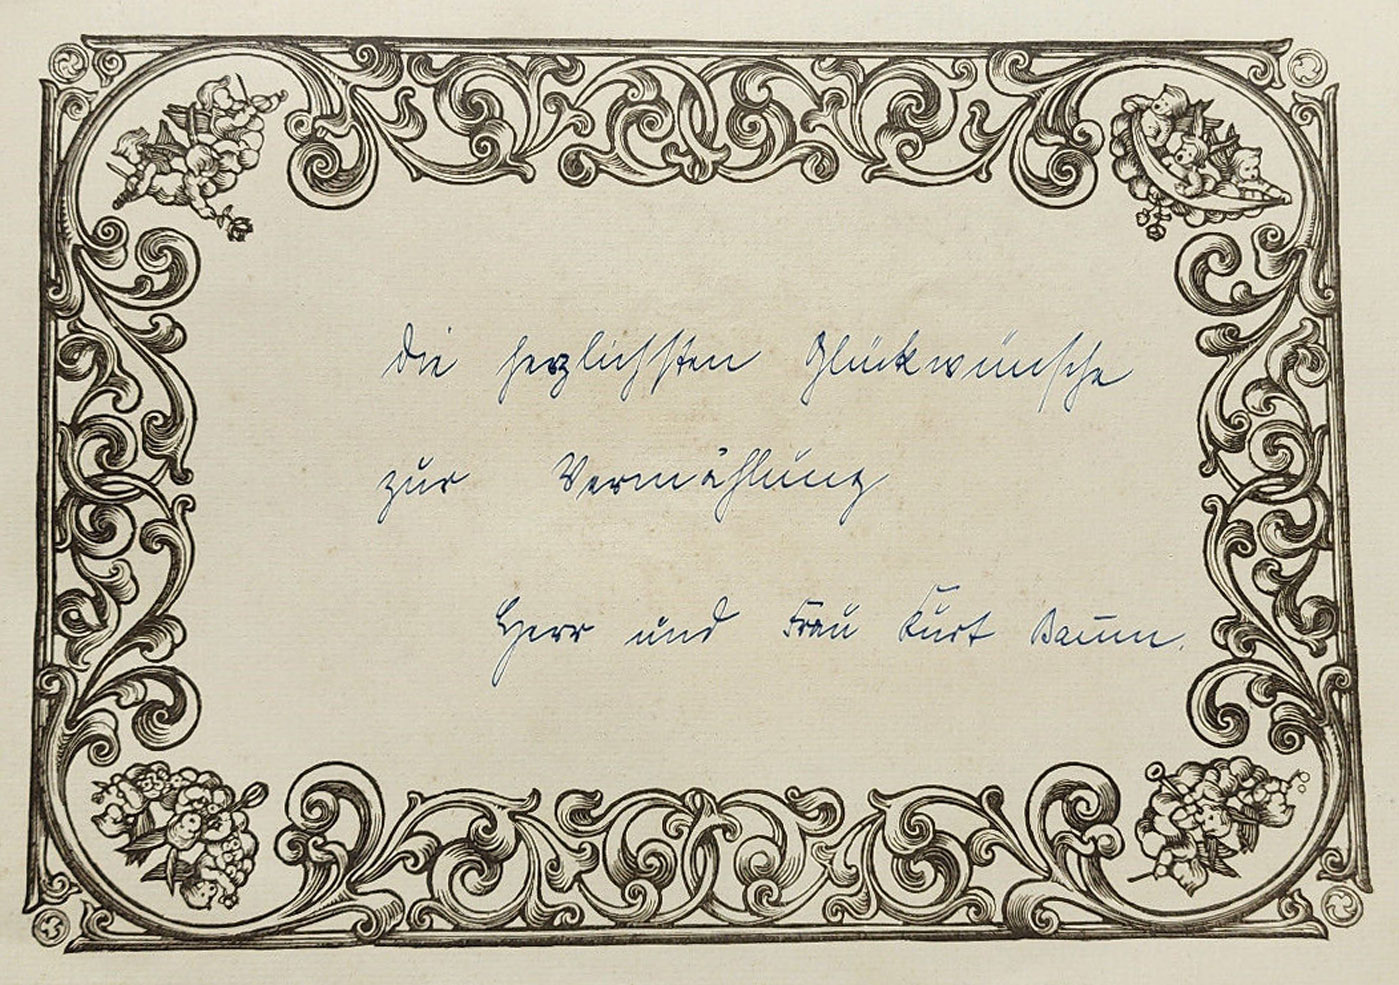 Die herzlichsten Glückwünsche
zur Vermählung
Herr und Frau Kurt Baum.